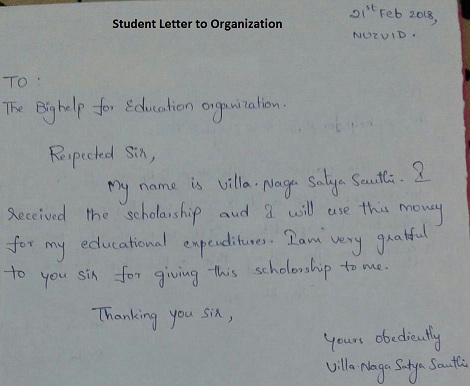 Student Letter to Organization
21st Feb 2018,
NUZVID.
TO :
The Bighelp for Education organization.
Respected Sir,
My name is Villa. Naga Satya Santhi. I
received the scholarship and I will use this money
for my educational expenditures. I am very gratful
to you sir for giving this scholorship to me.
Thanking you Sir,
yours obediently
Villa Naga Satya Santhi